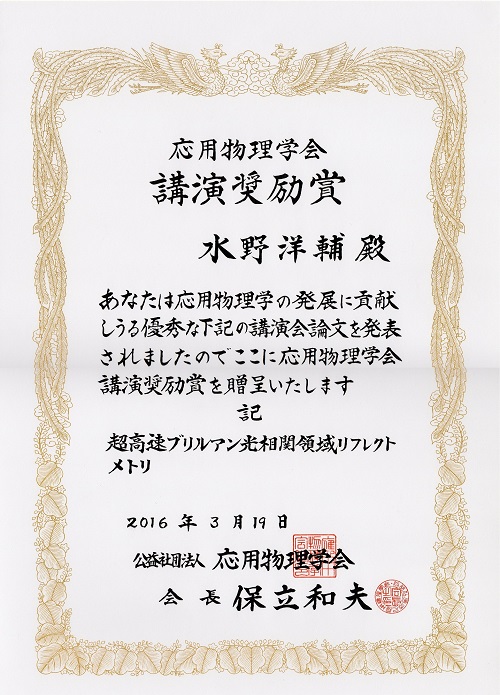 応用物理学会
講演奨励賞
水野洋輔 殿
あなたは応用物理学の発展に貢献
しうる優秀な下記の講演会論文を発表
されましたのでここに応用物理学会
講演奨励賞を贈呈いたします
記
超高速ブリルアン光相関領域リフレクト
メトリ
2016 年 3 月 19 日
公益社団法人 応用物理学会
会 長 保立和夫